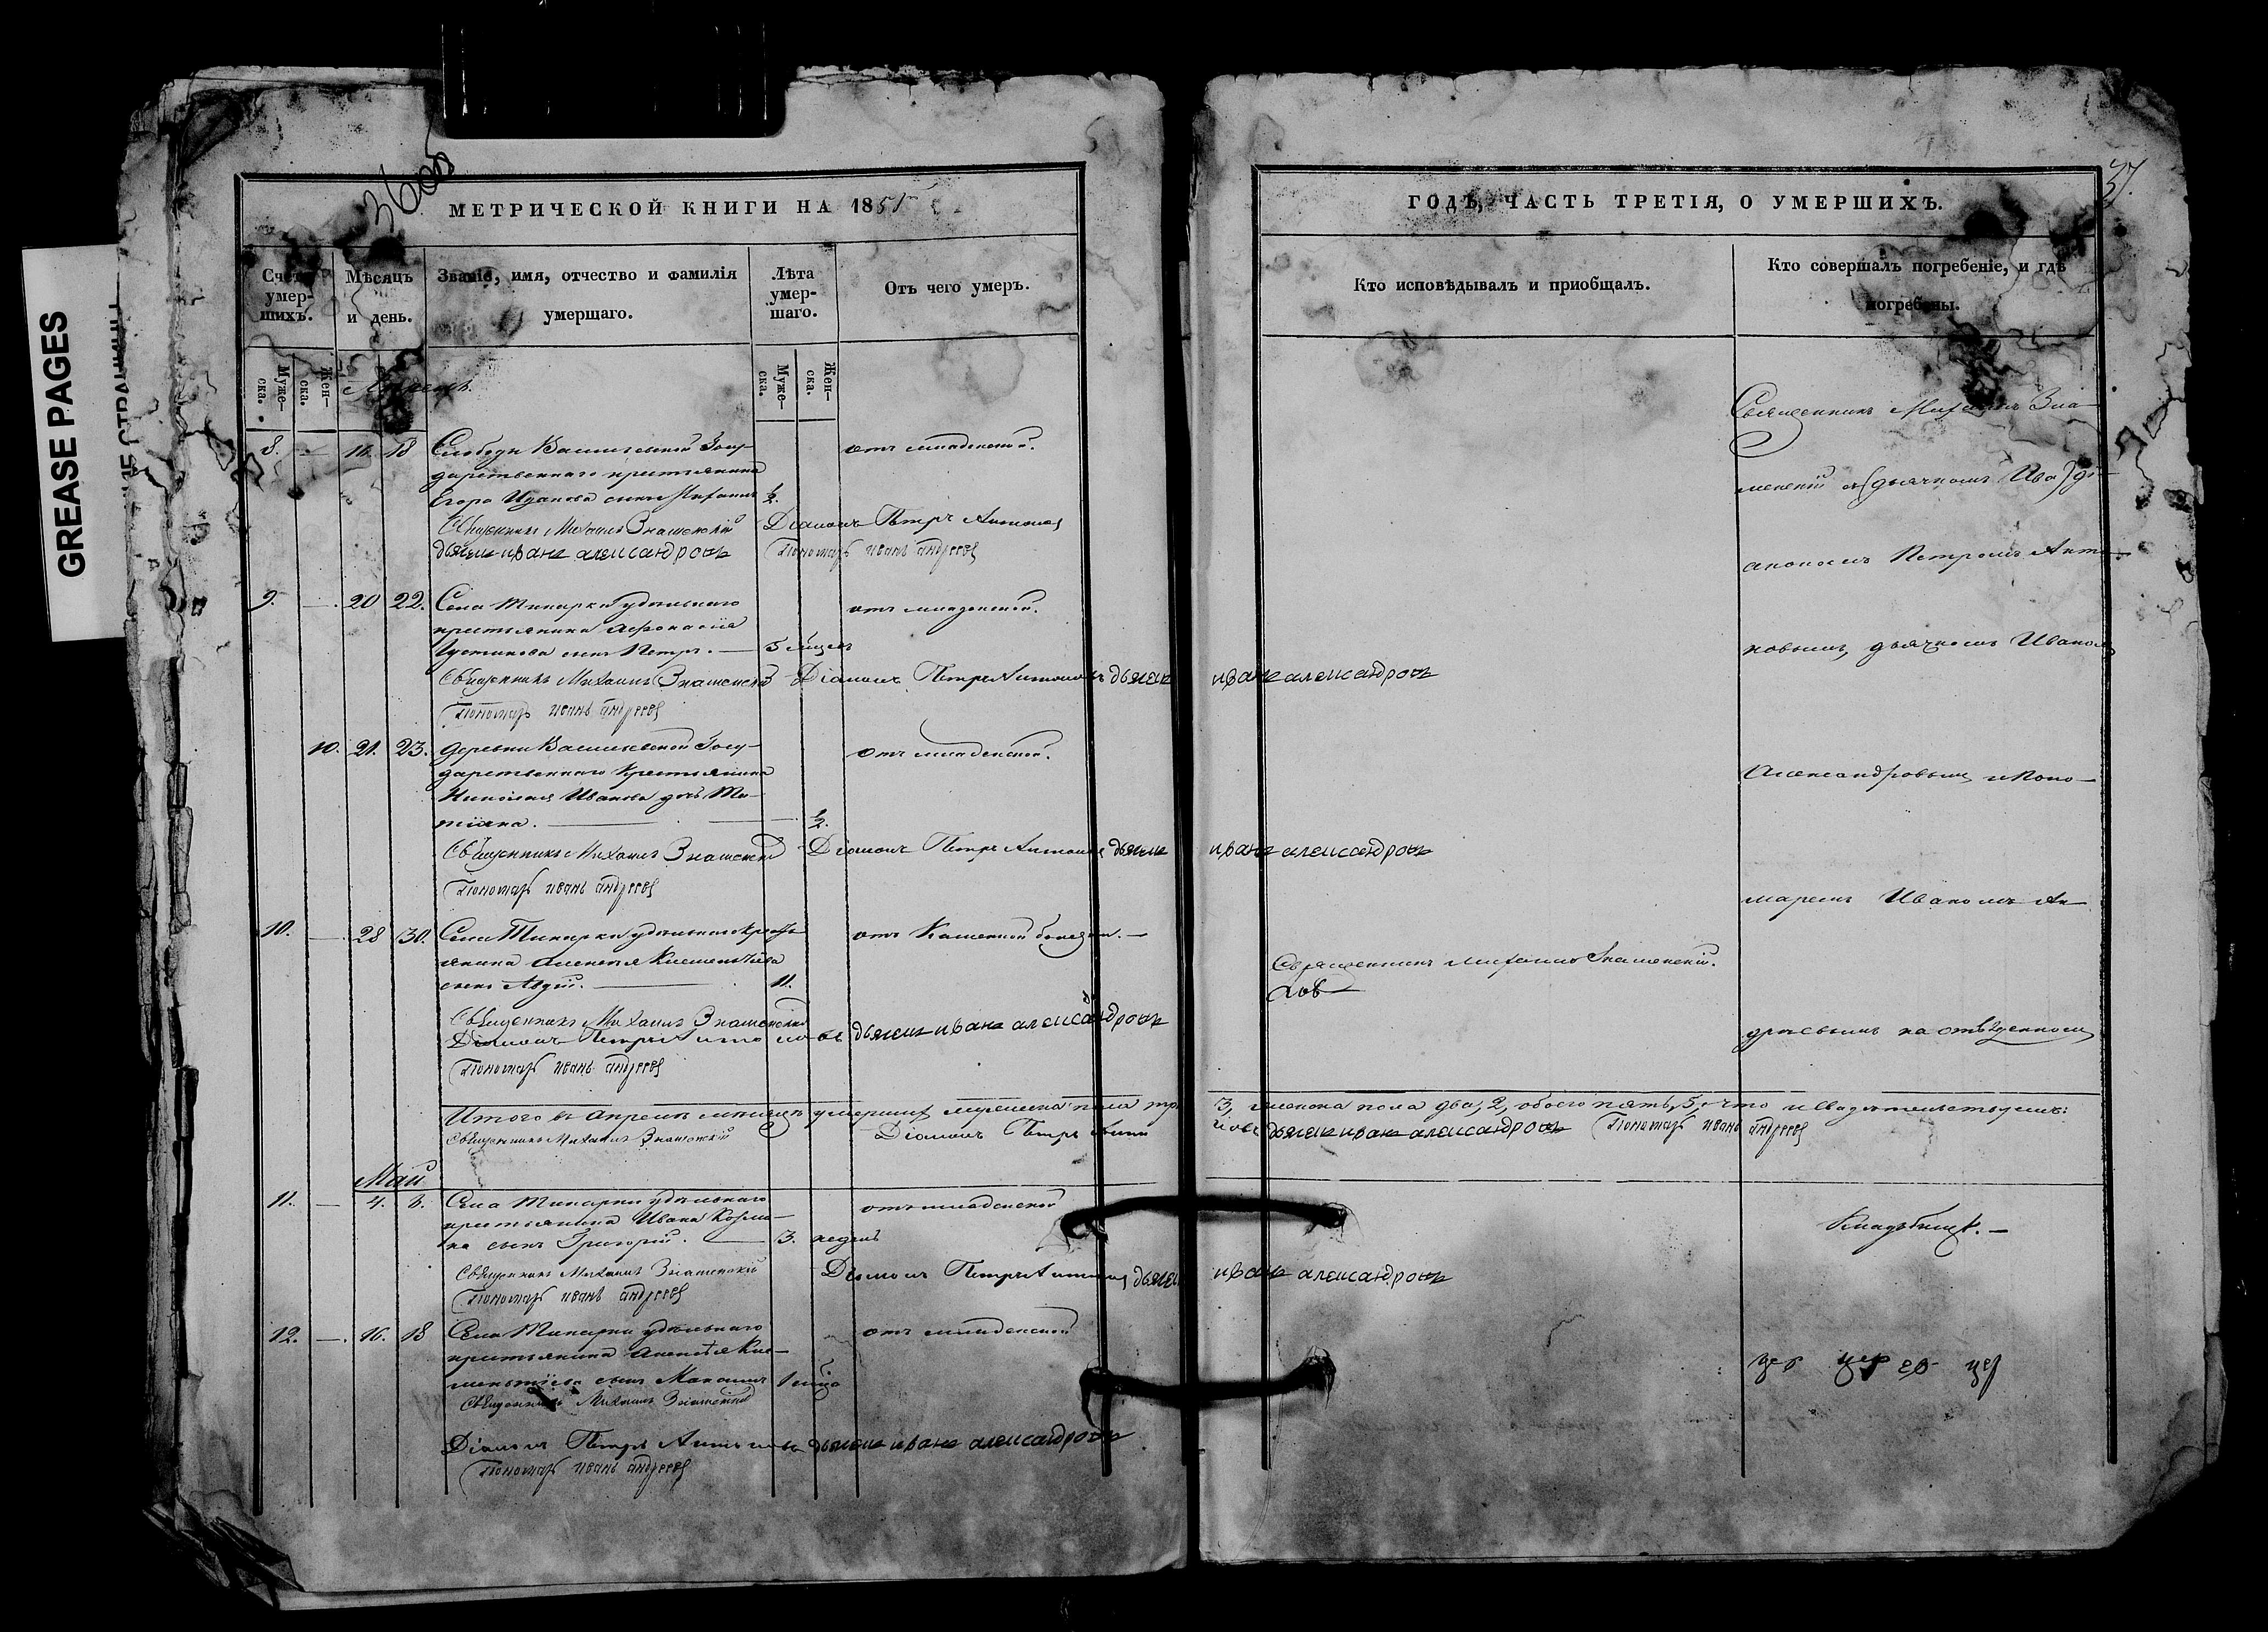 GREASE PAGES
3600
37.
МЕТРИЧЕСКОЙ КНИГИ НА 1851
Счетъ умер-шихъ.
Мѣсяцъ и день.
Званіе, имя, отчество и фамилія умершаго.
Лѣта умер-шаго.
Отъ чего умеръ.
Муже-ска.
Жен-ска.
Муже-ска.
Жен-ска.
Апрель.
8. — 16. 18 Слободы Васильевской Госу- отъ младенской.
дарственнаго крестьянина
Егора Иванова сынъ Михаилъ ½.
Священникъ Михаилъ Знаменскій Діаконъ Петръ Антоновъ
дьячекъ иванъ александровъ Пономарь иванъ андреевъ
9. — 20 22. Села удѣльнаго отъ младенской.
крестьянина Афонасія
сынъ Петръ. — 5 мѣсяцъ
Священникъ Михаилъ Знаменскій Діаконъ Петръ Антоновъ дьячекъ иванъ александровъ
Пономарь иванъ андреевъ
10. 21. 23. деревни Васильевской Госу- отъ младенской.
дарственнаго крестьянина
Николая Иванова дочь Та-
тіяна. — ½.
Священникъ Михаилъ Знаменскій Діаконъ Петръ Антоновъ дьячекъ иванъ александровъ
Пономарь иванъ андреевъ
10. — 28 30. Села удѣльнаго кресть- отъ Каменной болезни. —
янина Алексея Климентьева
сынъ Авдій. — 11.
Священникъ Михаилъ Знаменскій
Діаконъ Петръ Антоновъ дьячекъ иванъ александровъ
Пономарь иванъ андреевъ
Итого въ Апреле месяце умершихъ мужеска пола три 3, женска пола два, 2, обоего пять, 5, что и свидетельствуемъ:
Священникъ Михаилъ Знаменскій Діаконъ Петръ Антоновъ дьячекъ иванъ александровъ Пономарь иванъ андреевъ
Май
11. — 4. 6. Села удѣльнаго отъ младенской
крестьянина Ивана Козми-
на сынъ Григорій. — 3. недель
Священникъ Михаилъ Знаменскій Діаконъ Петръ Антоновъ дьячекъ иванъ александровъ
Пономарь иванъ андреевъ
12. — 16. 18 Села удѣльнаго отъ младенской
крестьянина Алексѣя Кли-
ментіева сынъ 1 мѣсяца
Священникъ Михаилъ Знаменскій
Діаконъ Петръ Антоновъ дьячекъ иванъ александровъ
Пономарь иванъ андреевъ
ГОДЪ, ЧАСТЬ ТРЕТІЯ, О УМЕРШИХЪ.
Кто исповѣдывалъ и приобщалъ.
Кто совершалъ погребеніе, и гдѣ погребены.
Священникъ Михаилъ Знаменскій.
Священникъ Михаилъ Зна-
менскій съ (дьячкомъ Ива) ді-
акономъ Петромъ Анто-
новымъ, дьячкомъ Иваномъ
Александровымъ и Поно-
маремъ Иваномъ Ан-
дреевымъ на отведенномъ
Кладбище. —